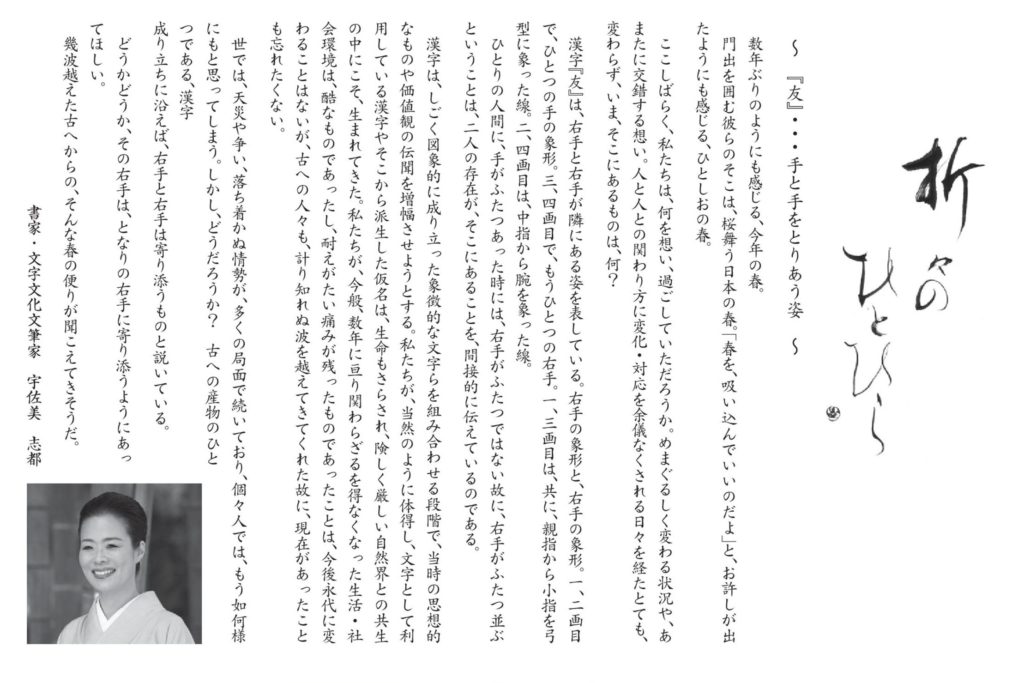 折々の
ひとひら
～ 『友』・・・手と手をとりあう姿 ～
数年ぶりのようにも感じる、今年の春。
門出を囲む彼らのそこは、桜舞う日本の春。「春を、吸い込んでいいのだよ」と、お許しが出
たようにも感じる、ひとしおの春。
ここしばらく、私たちは、何を想い、過ごしていただろうか。めまぐるしく変わる状況や、あ
またに交錯する想い。人と人との関わり方に変化・対応を余儀なくされる日々を経たとても、
変わらず、いま、そこにあるものは、何？
漢字『友』は、右手と右手が隣にある姿を表している。右手の象形と、右手の象形。一、二画目
で、ひとつの手の象形。三、四画目で、もうひとつの右手。一、三画目は、共に、親指から小指を弓
型に象った線。二、四画目は、中指から腕を象った線。
ひとりの人間に、手がふたつあった時には、右手がふたつではない故に、右手がふたつ並ぶ
ということは、二人の存在が、そこにあることを、間接的に伝えているのである。
漢字は、しごく図象的に成り立った象徴的な文字らを組み合わせる段階で、当時の思想的
なものや価値観の伝聞を増幅させようとする。私たちが、当然のように体得し、文字として利
用している漢字やそこから派生した仮名は、生命もさらされ、険しく厳しい自然界との共生
の中にこそ、生まれてきた。私たちが、今般、数年に亘り関わらざるを得なくなった生活・社
会環境は、酷なものであったし、耐えがたい痛みが残ったものであったことは、今後永代に変
わることはないが、古への人々も、計り知れぬ波を越えてきてくれた故に、現在があったこと
も忘れたくない。
世では、天災や争い、落ち着かぬ情勢が、多くの局面で続いており、個々人では、もう如何様
にもと思ってしまう。しかし、どうだろうか？ 古への産物のひと
つである、漢字
成り立ちに沿えば、右手と右手は寄り添うものと説いている。
どうかどうか、その右手は、となりの右手に寄り添うようにあっ
てほしい。
幾波越えた古へからの、そんな春の便りが聞こえてきそうだ。
書家・文字文化文筆家 宇佐美 志都